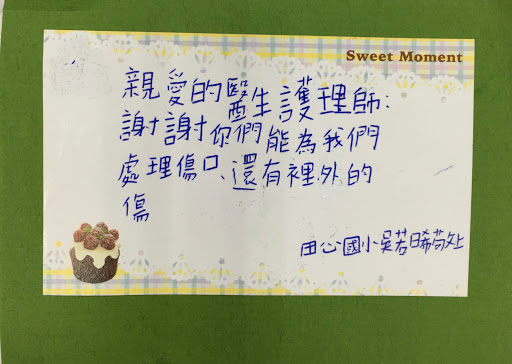 Sweet Moment
親愛的醫生護理師:
謝謝你們能為我們
處理傷口、還有裡外的
傷
田心國小吳若晞敬上